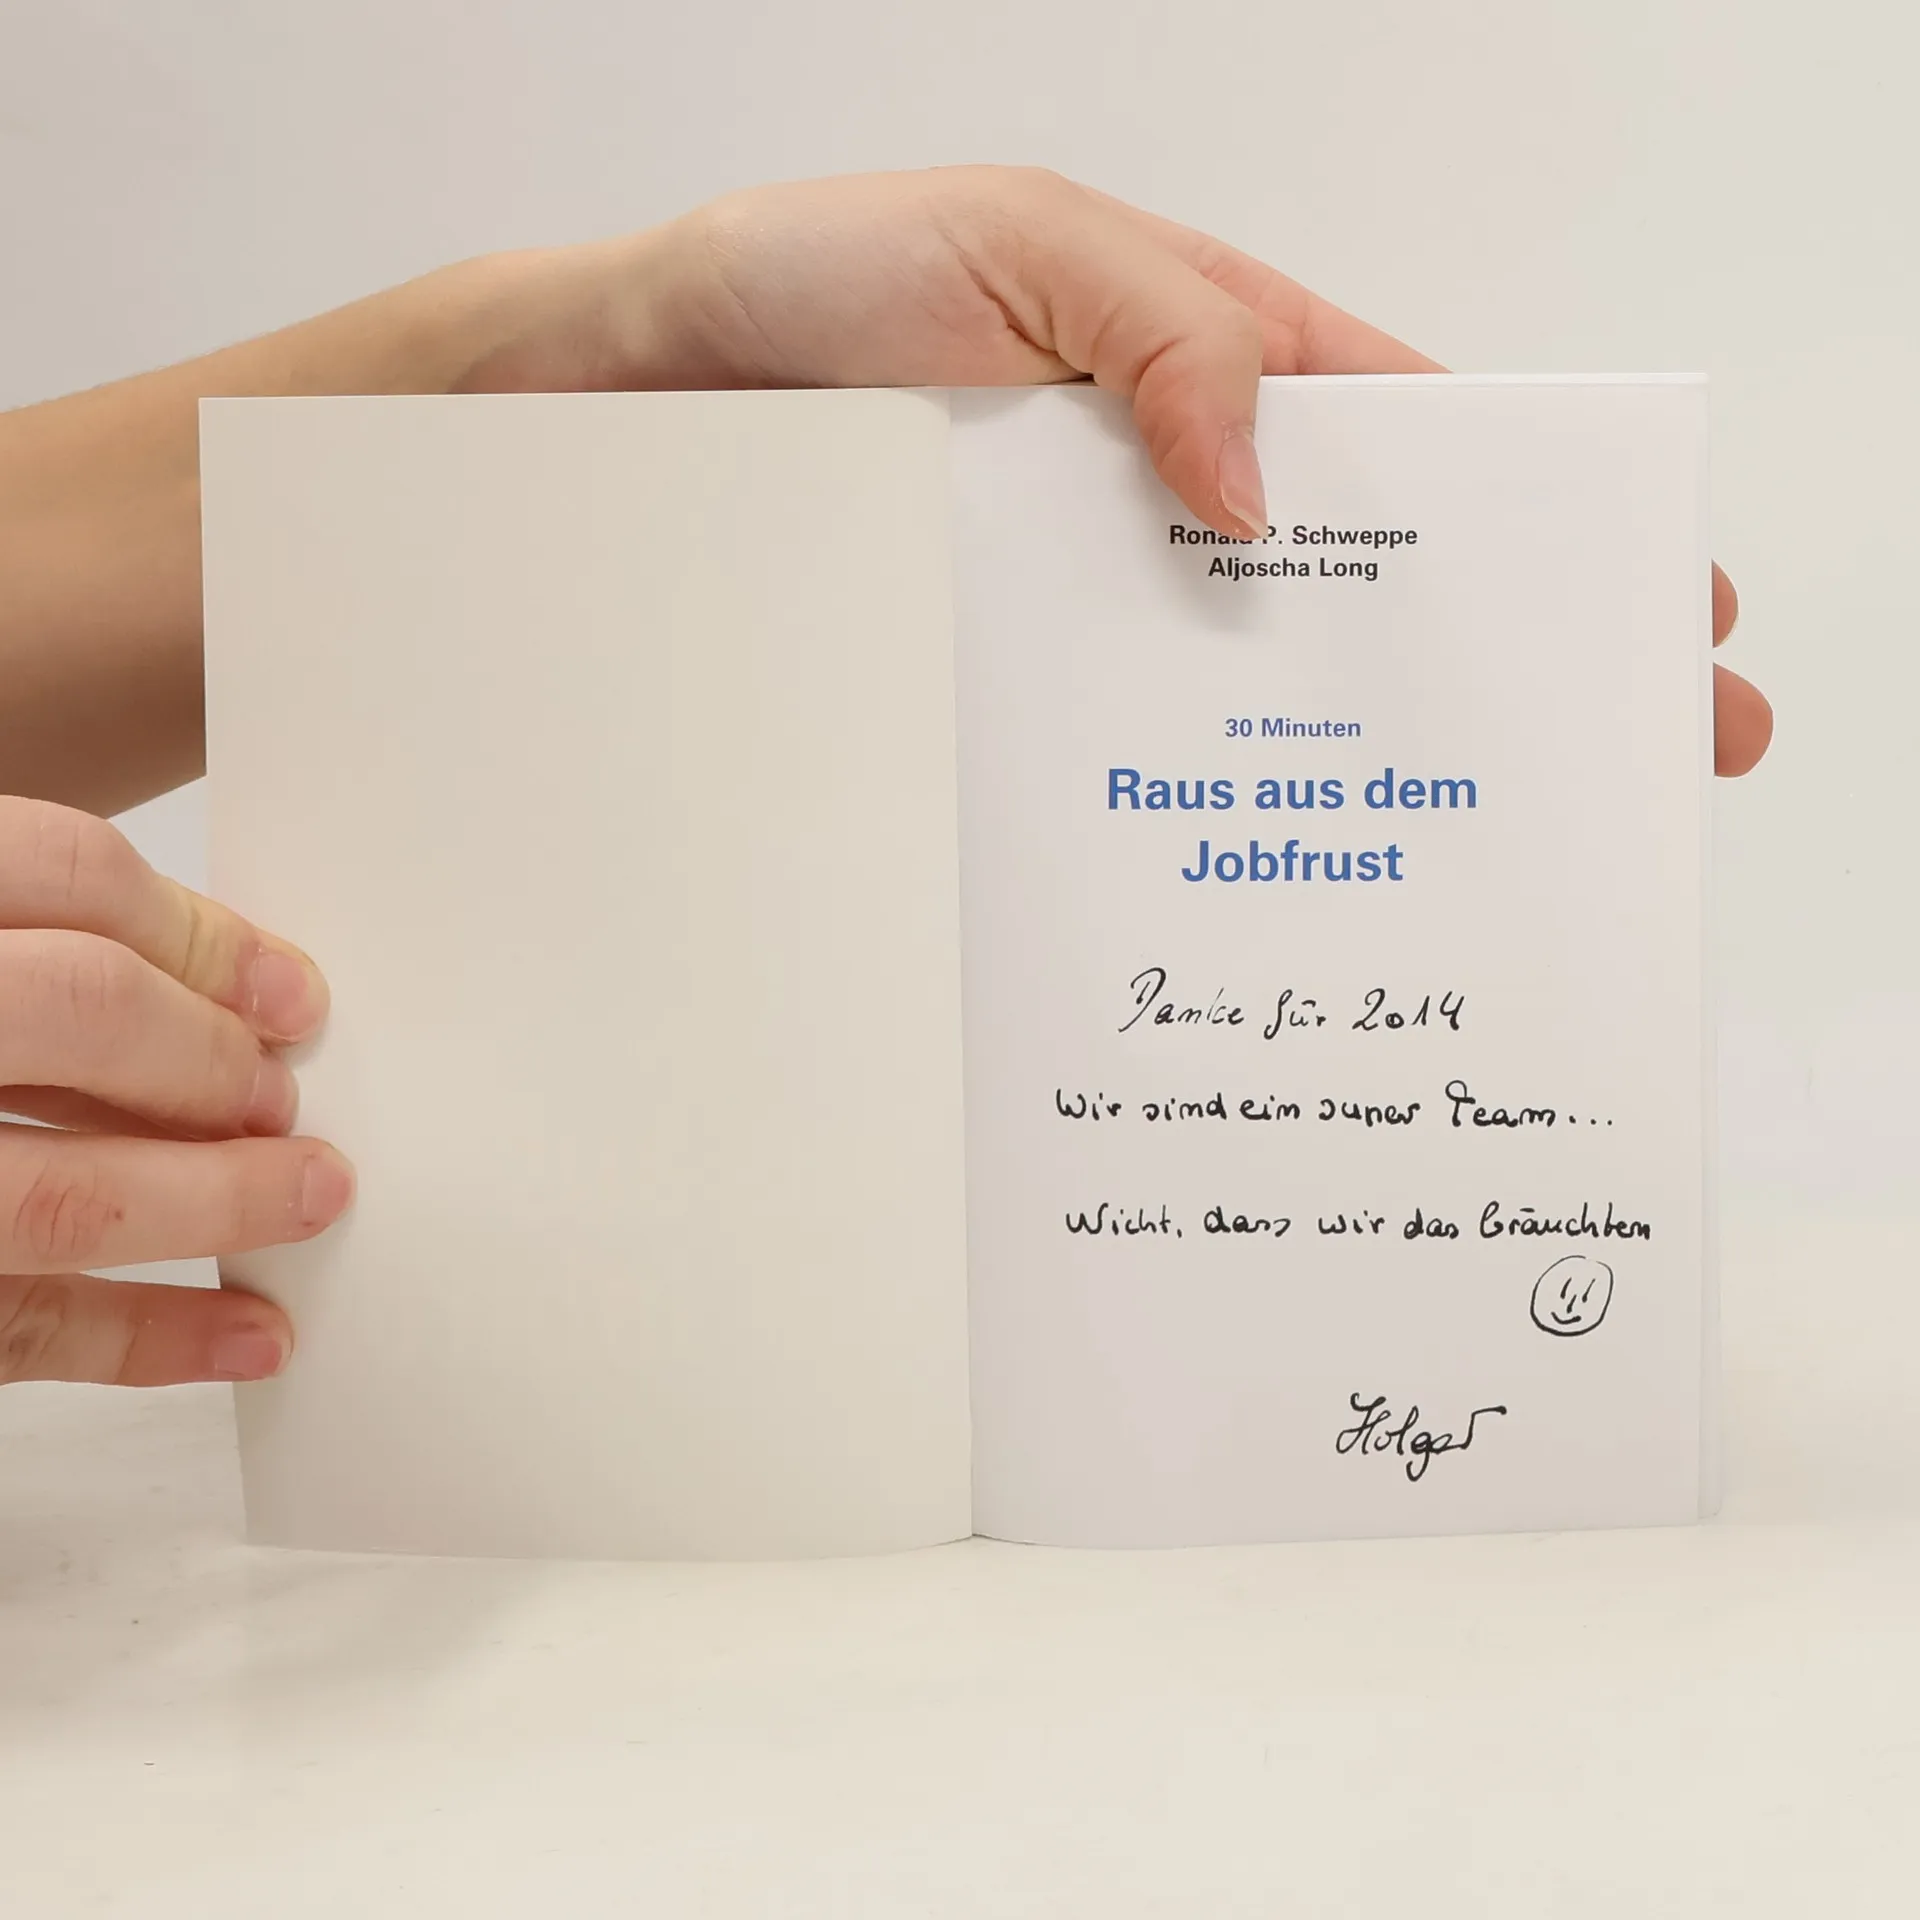 Ronald P. Schweppe
Aljoscha Long
30 Minuten
Raus aus dem
Jobfrust
Danke für 2014
Wir sind ein super Team...
Nicht, dass wir das bräuchten
Holger